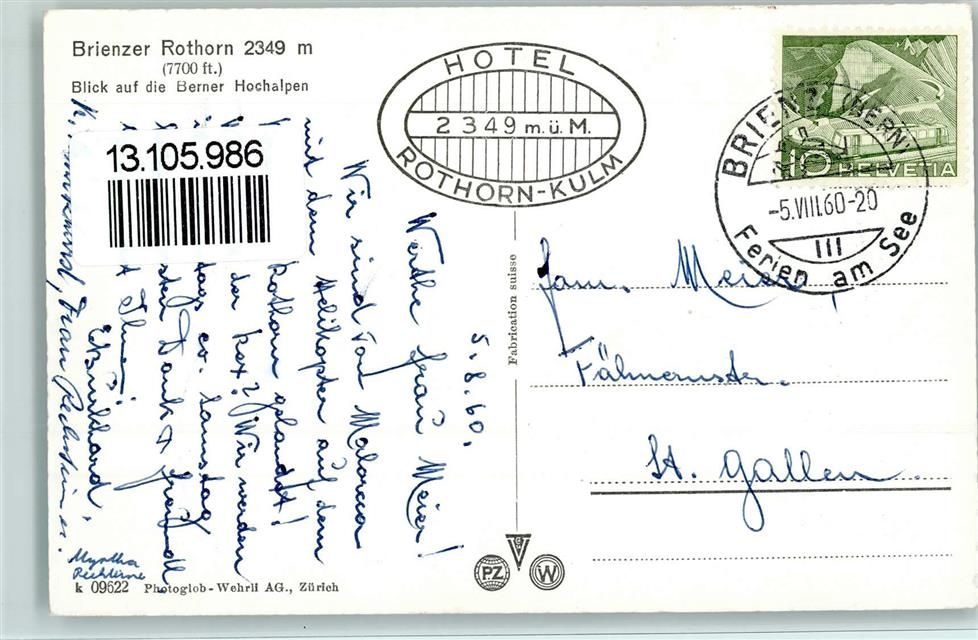 Brienzer Rothorn 2349 m
(7700 ft.)
Blick auf die Berner Hochalpen
HOTEL
2349 m.ü.M.
ROTHORN-KULM
BRIENZ (BERN)
-5.VIII.60-20
III
Ferien am See
10
HELVETIA
13.105.986
5.8.60.
Werthe Frau Meier!
Wir sind von
mit dem Helikopter auf dem
Rothorn gelandet!
Wir werden
ev. Samstag
Dank &
E. Burkhard.
Frau
Myrtha
Fam. Meier,
St. Gallen.
Fabrication suisse
PZ
W
k 09622 Photoglob-Wehrli AG., Zürich